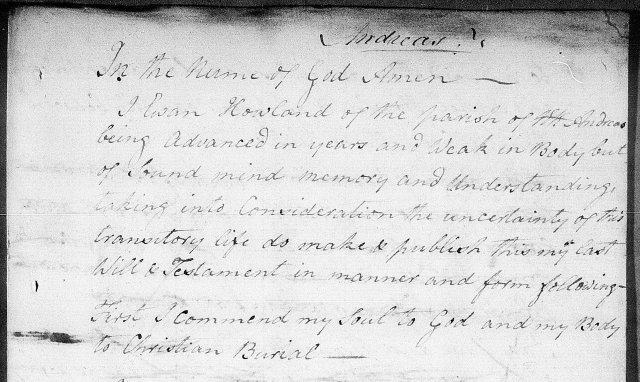 Andreas
In the Name of God Amen —
I Ewan Howland of the parish of Andreas
being Advanced in years and Weak in Body but
of Sound mind memory and Understanding,
taking into Consideration the uncertainty of this
transitory life do make & publish this my last
Will & Testament in manner and form following—
First I Commend my Soul to God and my Body
to Christian Burial —